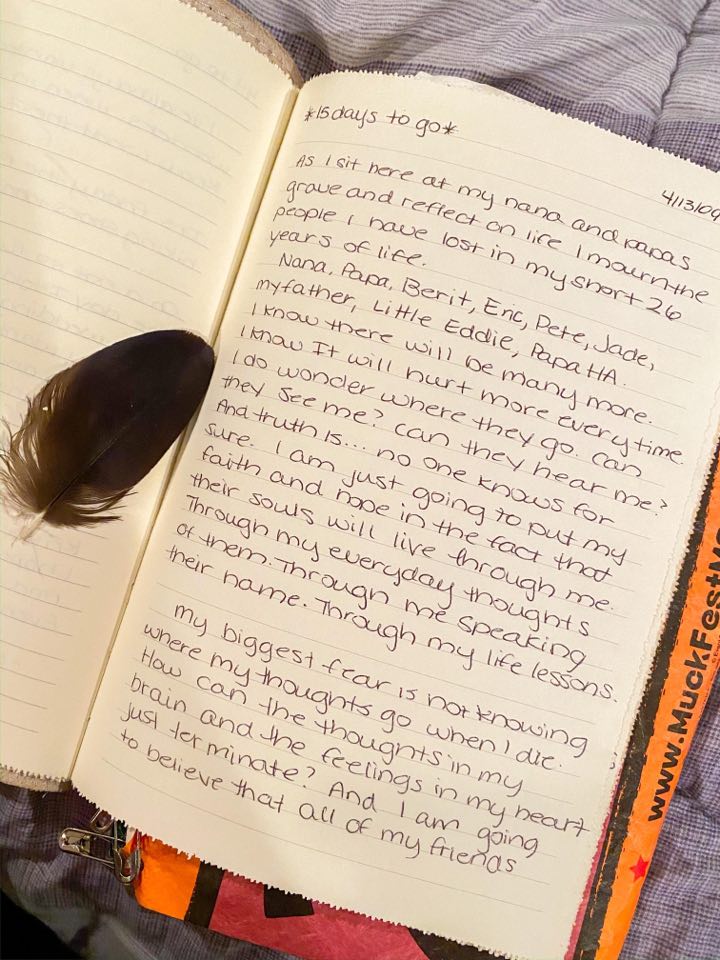 *15 days to go*
4/13/09
As I sit here at my nana and papas
grave and reflect on life I mourn the
people I have lost in my short 26
years of life.
Nana, Papa, Berit, Eric, Pete, Jade,
my father, Little Eddie, Papa HA.
I know there will be many more.
I know It will hurt more everytime.
I do wonder where they go. Can
they see me? Can they hear me?
And truth is... no one knows for
sure. I am just going to put my
faith and hope in the fact that
their souls will live through me.
Through my everyday thoughts
of them. Through me speaking
their name. Through my life lessons.
My biggest fear is not knowing
where my thoughts go when I die.
How can the thoughts in my
brain and the feelings in my heart
just terminate? And I am going
to believe that all of my friends
www.MuckFestM